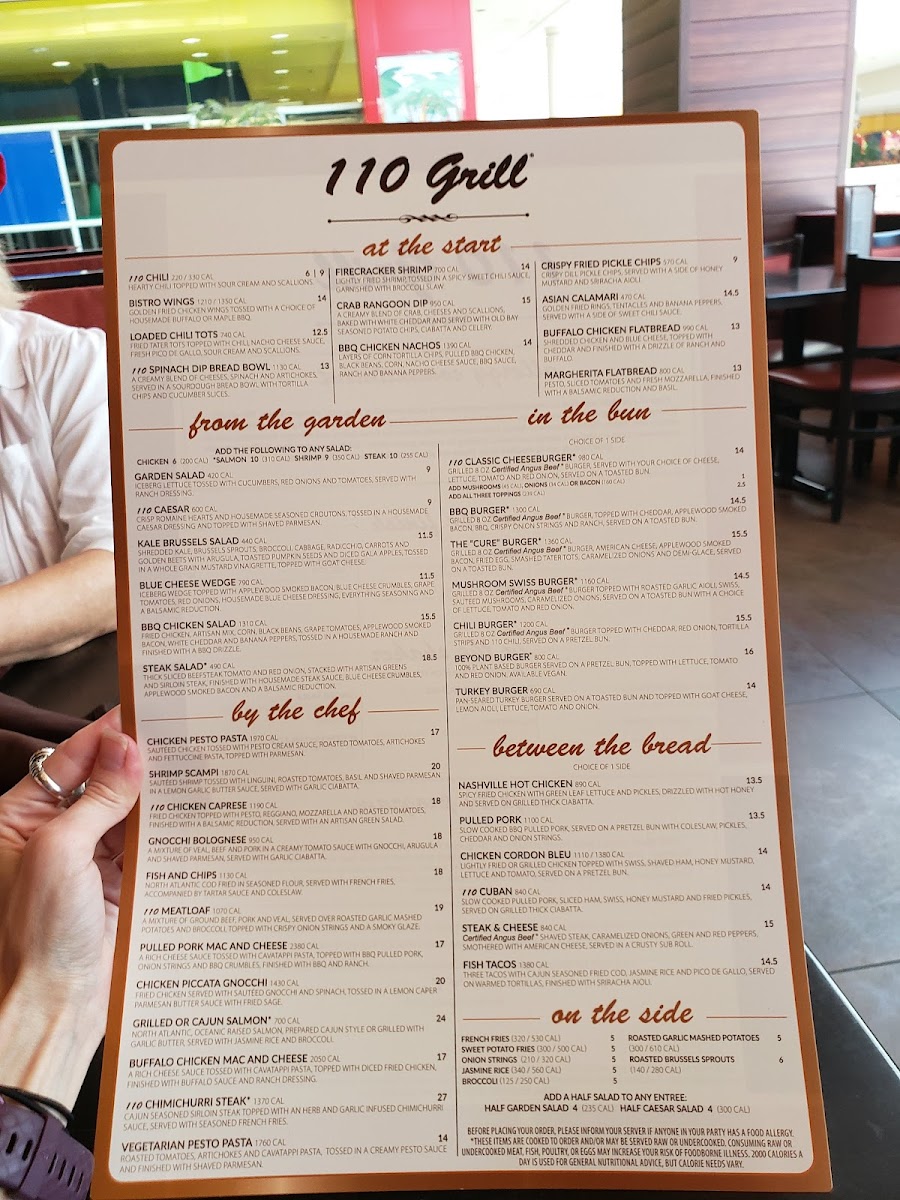 110 Grill
at the start
110 CHILI 220 / 330 CAL 6 | 9
HEARTY CHILI TOPPED WITH SOUR CREAM AND SCALLIONS.
BISTRO WINGS 1210 / 1350 CAL 14
GOLDEN FRIED CHICKEN WINGS TOSSED WITH A CHOICE OF
HOUSEMADE BUFFALO OR MAPLE BBQ.
LOADED CHILI TOTS 740 CAL 12.5
FRIED TATER TOTS TOPPED WITH CHILI, NACHO CHEESE SAUCE,
FRESH PICO DE GALLO, SOUR CREAM AND SCALLIONS.
110 SPINACH DIP BREAD BOWL 1130 CAL 13
A CREAMY BLEND OF CHEESES, SPINACH AND ARTICHOKES,
SERVED IN A SOURDOUGH BREAD BOWL, WITH TORTILLA
CHIPS AND CUCUMBER SLICES.
FIRECRACKER SHRIMP 700 CAL 14
LIGHTLY FRIED SHRIMP, TOSSED IN A SPICY SWEET CHILI SAUCE,
GARNISHED WITH BROCCOLI SLAW.
CRAB RANGOON DIP 950 CAL 15
A CREAMY BLEND OF CRAB, CHEESES AND SCALLIONS,
BAKED WITH WHITE CHEDDAR AND SERVED WITH OLD BAY
SEASONED POTATO CHIPS, CIABATTA AND CELERY.
BBQ CHICKEN NACHOS 1390 CAL 14
LAYERS OF CORN TORTILLA CHIPS, PULLED BBQ CHICKEN,
BLACK BEANS, CORN, NACHO CHEESE SAUCE, BBQ SAUCE,
RANCH AND BANANA PEPPERS.
CRISPY FRIED PICKLE CHIPS 570 CAL 9
CRISPY DILL PICKLE CHIPS, SERVED WITH A SIDE OF HONEY
MUSTARD AND SRIRACHA AIOLI.
ASIAN CALAMARI 470 CAL 14.5
GOLDEN FRIED RINGS, TENTACLES AND BANANA PEPPERS,
SERVED WITH A SIDE OF SWEET CHILI SAUCE.
BUFFALO CHICKEN FLATBREAD 990 CAL 13
SHREDDED CHICKEN AND BLUE CHEESE, TOPPED WITH
CHEDDAR AND FINISHED WITH A DRIZZLE OF RANCH AND
BUFFALO.
MARGHERITA FLATBREAD 800 CAL 13
PESTO, SLICED TOMATOES AND FRESH MOZZARELLA, FINISHED
WITH A BALSAMIC REDUCTION AND BASIL.
from the garden
ADD THE FOLLOWING TO ANY SALAD:
CHICKEN 6 (200 CAL) *SALMON 10 (310 CAL) SHRIMP 9 (350 CAL) STEAK 10 (255 CAL)
GARDEN SALAD 420 CAL 9
ICEBERG LETTUCE TOSSED WITH CUCUMBERS, RED ONIONS AND TOMATOES, SERVED WITH
RANCH DRESSING.
110 CAESAR 600 CAL 9
CRISP ROMAINE HEARTS AND HOUSEMADE SEASONED CROUTONS, TOSSED IN A HOUSEMADE
CAESAR DRESSING AND TOPPED WITH SHAVED PARMESAN.
KALE BRUSSELS SALAD 440 CAL 11.5
SHREDDED KALE, BRUSSELS SPROUTS, BROCCOLI, CABBAGE, RADICCHIO, CARROTS AND
GOLDEN BEETS WITH ARUGULA, TOASTED PUMPKIN SEEDS AND DICED GALA APPLES, TOSSED
IN A WHOLE GRAIN MUSTARD VINAIGRETTE, TOPPED WITH GOAT CHEESE.
BLUE CHEESE WEDGE 790 CAL 11.5
ICEBERG WEDGE TOPPED WITH APPLEWOOD SMOKED BACON, BLUE CHEESE CRUMBLES, GRAPE
TOMATOES, RED ONIONS, HOUSEMADE BLUE CHEESE DRESSING, EVERYTHING SEASONING AND
A BALSAMIC REDUCTION.
BBQ CHICKEN SALAD 1310 CAL 15.5
FRIED CHICKEN, ARTISAN MIX, CORN, BLACK BEANS, GRAPE TOMATOES, APPLEWOOD SMOKED
BACON, WHITE CHEDDAR AND BANANA PEPPERS, TOSSED IN A HOUSEMADE RANCH AND
FINISHED WITH A BBQ DRIZZLE.
STEAK SALAD* 490 CAL 18.5
THICK SLICED BEEFSTEAK TOMATO AND RED ONION, STACKED WITH ARTISAN GREENS
AND SIRLOIN STEAK, FINISHED WITH HOUSEMADE STEAK SAUCE, BLUE CHEESE CRUMBLES,
APPLEWOOD SMOKED BACON AND A BALSAMIC REDUCTION.
by the chef
CHICKEN PESTO PASTA 1970 CAL 17
SAUTÉED CHICKEN TOSSED WITH PESTO CREAM SAUCE, ROASTED TOMATOES, ARTICHOKES
AND FETTUCCINE PASTA, TOPPED WITH PARMESAN.
SHRIMP SCAMPI 1870 CAL 20
SAUTÉED SHRIMP TOSSED WITH LINGUINI, ROASTED TOMATOES, BASIL AND SHAVED PARMESAN
IN A LEMON GARLIC BUTTER SAUCE, SERVED WITH GARLIC CIABATTA.
110 CHICKEN CAPRESE 1190 CAL 18
FRIED CHICKEN TOPPED WITH PESTO, REGGIANO, MOZZARELLA AND ROASTED TOMATOES,
FINISHED WITH A BALSAMIC REDUCTION, SERVED WITH AN ARTISAN GREEN SALAD.
GNOCCHI BOLOGNESE 950 CAL 18
A MIXTURE OF VEAL, BEEF AND PORK IN A CREAMY TOMATO SAUCE WITH GNOCCHI, ARUGULA
AND SHAVED PARMESAN, SERVED WITH GARLIC CIABATTA.
FISH AND CHIPS 1130 CAL 18
NORTH ATLANTIC COD FRIED IN SEASONED FLOUR, SERVED WITH FRENCH FRIES,
ACCOMPANIED BY TARTAR SAUCE AND COLESLAW.
110 MEATLOAF 1070 CAL 19
A MIXTURE OF GROUND BEEF, PORK AND VEAL, SERVED OVER ROASTED GARLIC MASHED
POTATOES AND BROCCOLI, TOPPED WITH CRISPY ONION STRINGS AND A SMOKY GLAZE.
PULLED PORK MAC AND CHEESE 2380 CAL 17
A RICH CHEESE SAUCE TOSSED WITH CAVATAPPI PASTA, TOPPED WITH BBQ PULLED PORK,
ONION STRINGS AND BBQ CRUMBLES, FINISHED WITH BBQ AND RANCH.
CHICKEN PICCATA GNOCCHI 1430 CAL 20
FRIED CHICKEN SERVED WITH SAUTÉED GNOCCHI AND SPINACH, TOSSED IN A LEMON CAPER
PARMESAN BUTTER SAUCE WITH FRIED SAGE.
GRILLED OR CAJUN SALMON* 700 CAL 24
NORTH ATLANTIC, OCEANIC RAISED SALMON, PREPARED CAJUN STYLE OR GRILLED WITH
GARLIC BUTTER, SERVED WITH JASMINE RICE AND BROCCOLI.
BUFFALO CHICKEN MAC AND CHEESE 2050 CAL 17
A RICH CHEESE SAUCE TOSSED WITH CAVATAPPI PASTA, TOPPED WITH DICED FRIED CHICKEN,
FINISHED WITH BUFFALO SAUCE AND RANCH DRESSING.
110 CHIMICHURRI STEAK* 1370 CAL 27
CAJUN SEASONED SIRLOIN STEAK TOPPED WITH AN HERB AND GARLIC INFUSED CHIMICHURRI
SAUCE, SERVED WITH SEASONED FRENCH FRIES.
VEGETARIAN PESTO PASTA 1760 CAL 14
ROASTED TOMATOES, ARTICHOKES AND CAVATAPPI PASTA, TOSSED IN A CREAMY PESTO SAUCE
AND FINISHED WITH SHAVED PARMESAN.
in the bun
CHOICE OF 1 SIDE
110 CLASSIC CHEESEBURGER* 980 CAL 14
GRILLED 8 OZ Certified Angus Beef® BURGER, SERVED WITH YOUR CHOICE OF CHEESE,
LETTUCE, TOMATO AND RED ONION, SERVED ON A TOASTED BUN.
ADD MUSHROOMS (45 CAL), ONIONS (34 CAL) OR BACON (160 CAL) 1
ADD ALL THREE TOPPINGS (239 CAL) 2.5
BBQ BURGER* 1300 CAL 14.5
GRILLED 8 OZ Certified Angus Beef® BURGER, TOPPED WITH CHEDDAR, APPLEWOOD SMOKED
BACON, BBQ, CRISPY ONION STRINGS AND RANCH, SERVED ON A TOASTED BUN.
THE "CURE" BURGER* 1360 CAL 15.5
GRILLED 8 OZ Certified Angus Beef® BURGER, AMERICAN CHEESE, APPLEWOOD SMOKED
BACON, FRIED EGG, SMASHED TATER TOTS, CARAMELIZED ONIONS AND DEMI-GLACE, SERVED
ON A TOASTED BUN.
MUSHROOM SWISS BURGER* 1160 CAL 14.5
GRILLED 8 OZ Certified Angus Beef® BURGER TOPPED WITH ROASTED GARLIC AIOLI, SWISS,
SAUTÉED MUSHROOMS, CARAMELIZED ONIONS, SERVED ON A TOASTED BUN WITH A CHOICE
OF LETTUCE, TOMATO AND RED ONION.
CHILI BURGER* 1200 CAL 15.5
GRILLED 8 OZ Certified Angus Beef® BURGER TOPPED WITH CHEDDAR, RED ONION, TORTILLA
STRIPS AND 110 CHILI, SERVED ON A PRETZEL BUN.
BEYOND BURGER® 800 CAL 16
100% PLANT BASED BURGER SERVED ON A PRETZEL BUN, TOPPED WITH LETTUCE, TOMATO
AND RED ONION. AVAILABLE VEGAN.
TURKEY BURGER 690 CAL 14
PAN-SEARED TURKEY BURGER SERVED ON A TOASTED BUN AND TOPPED WITH GOAT CHEESE,
LEMON AIOLI, LETTUCE, TOMATO AND ONION.
between the bread
CHOICE OF 1 SIDE
NASHVILLE HOT CHICKEN 890 CAL 13.5
SPICY FRIED CHICKEN WITH GREEN LEAF LETTUCE AND PICKLES, DRIZZLED WITH HOT HONEY
AND SERVED ON GRILLED THICK CIABATTA.
PULLED PORK 1100 CAL 13.5
SLOW COOKED BBQ PULLED PORK, SERVED ON A PRETZEL BUN WITH COLESLAW, PICKLES,
CHEDDAR AND ONION STRINGS.
CHICKEN CORDON BLEU 1110 / 1380 CAL 14
LIGHTLY FRIED OR GRILLED CHICKEN TOPPED WITH SWISS, SHAVED HAM, HONEY MUSTARD,
LETTUCE AND TOMATO, SERVED ON A PRETZEL BUN.
110 CUBAN 840 CAL 14
SLOW COOKED PULLED PORK, SLICED HAM, SWISS, HONEY MUSTARD AND FRIED PICKLES,
SERVED ON GRILLED THICK CIABATTA.
STEAK & CHEESE 840 CAL 15
Certified Angus Beef® SHAVED STEAK, CARAMELIZED ONIONS, GREEN AND RED PEPPERS,
SMOTHERED WITH AMERICAN CHEESE, SERVED IN A CRUSTY SUB ROLL.
FISH TACOS 1380 CAL 14.5
THREE TACOS WITH CAJUN SEASONED FRIED COD, JASMINE RICE AND PICO DE GALLO, SERVED
ON WARMED TORTILLAS, FINISHED WITH SRIRACHA AIOLI.
on the side
FRENCH FRIES (320 / 530 CAL) 5
SWEET POTATO FRIES (300 / 500 CAL) 5
ONION STRINGS (210 / 320 CAL) 5
JASMINE RICE (340 / 560 CAL) 5
BROCCOLI (125 / 250 CAL) 5
ROASTED GARLIC MASHED POTATOES 5
(300 / 610 CAL)
ROASTED BRUSSELS SPROUTS 6
(140 / 280 CAL)
ADD A HALF SALAD TO ANY ENTREE:
HALF GARDEN SALAD 4 (235 CAL) HALF CAESAR SALAD 4 (300 CAL)
BEFORE PLACING YOUR ORDER, PLEASE INFORM YOUR SERVER IF ANYONE IN YOUR PARTY HAS A FOOD ALLERGY.
*THESE ITEMS ARE COOKED TO ORDER AND/OR MAY BE SERVED RAW OR UNDERCOOKED. CONSUMING RAW OR
UNDERCOOKED MEAT, FISH, POULTRY, OR EGGS MAY INCREASE YOUR RISK OF FOODBORNE ILLNESS. 2000 CALORIES A
DAY IS USED FOR GENERAL NUTRITIONAL ADVICE, BUT CALORIE NEEDS VARY.